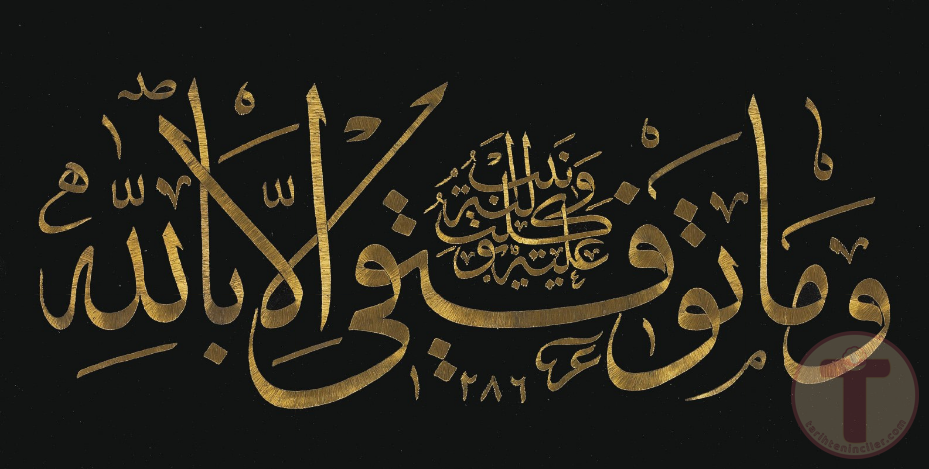 وما توفيقي الا بالله
عليه توكلت واليه انيب
١٢٨٦
tarihteninciler.com